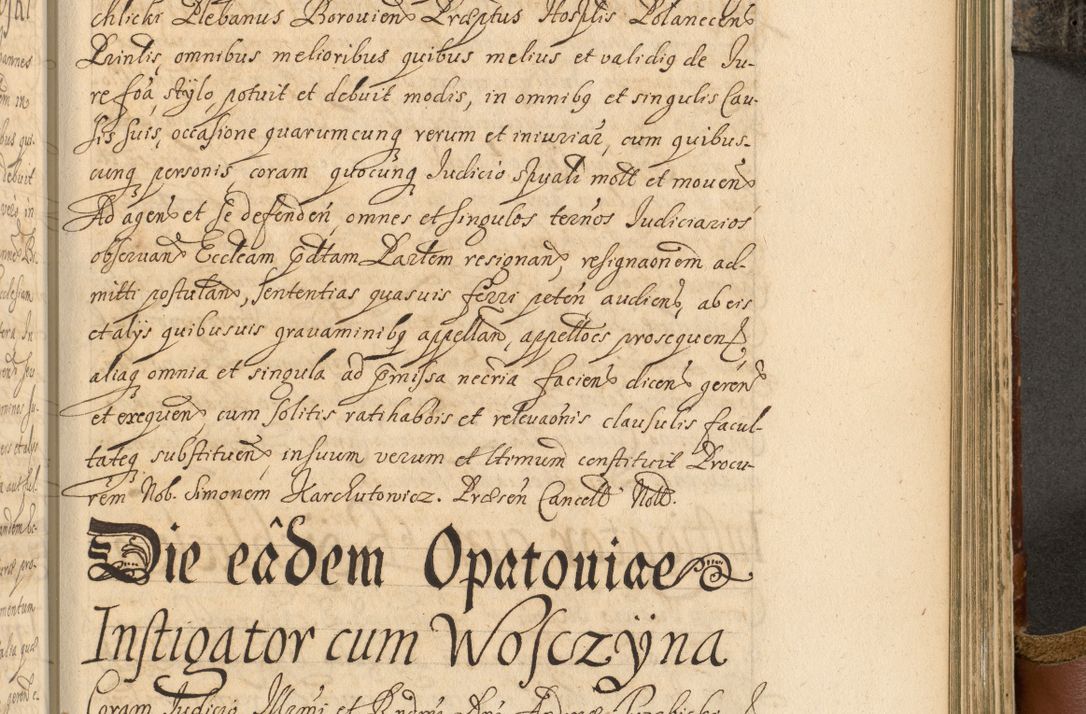 chlicki Plebanus Borovien Præptus Hosplis Polanecen
Printię omnibus melioribus quibus melius et validię de Ju-
re foã, stÿlo, potuit et debuit modis, in omnibq et singulis Cau-
sis suis, occasione quarumcunq rerum et iniuriar, cum quibus-
cunq personis, coram quocunq Judicio spuali mott et mouen
Ad agen et se defenden, omnes et singulos termos Judiciarios
obseruan Eccleam pdtam Partem resignan, resignaonem ad-
mitti postulan, sententias quasuis ferri peten audien, ab eis
et alÿs quibusuis grauaminibq appellan, appellões prosequen,
aliaq omnia et singula ad pmissa necria facien dicen geren
et exequen, cum solitis ratihabõis et releuaõnis clausulis facul-
tateq substituen, in suum verum et ltimum constituit Procu-
rem Nob. Simonem Karchutowicz. Præsen Cancell Nott.
Die eâdem Opatouiae
Instigator cum Wosczÿna
Coram Judicio Illrmi et Rndmi Dni Andreæ